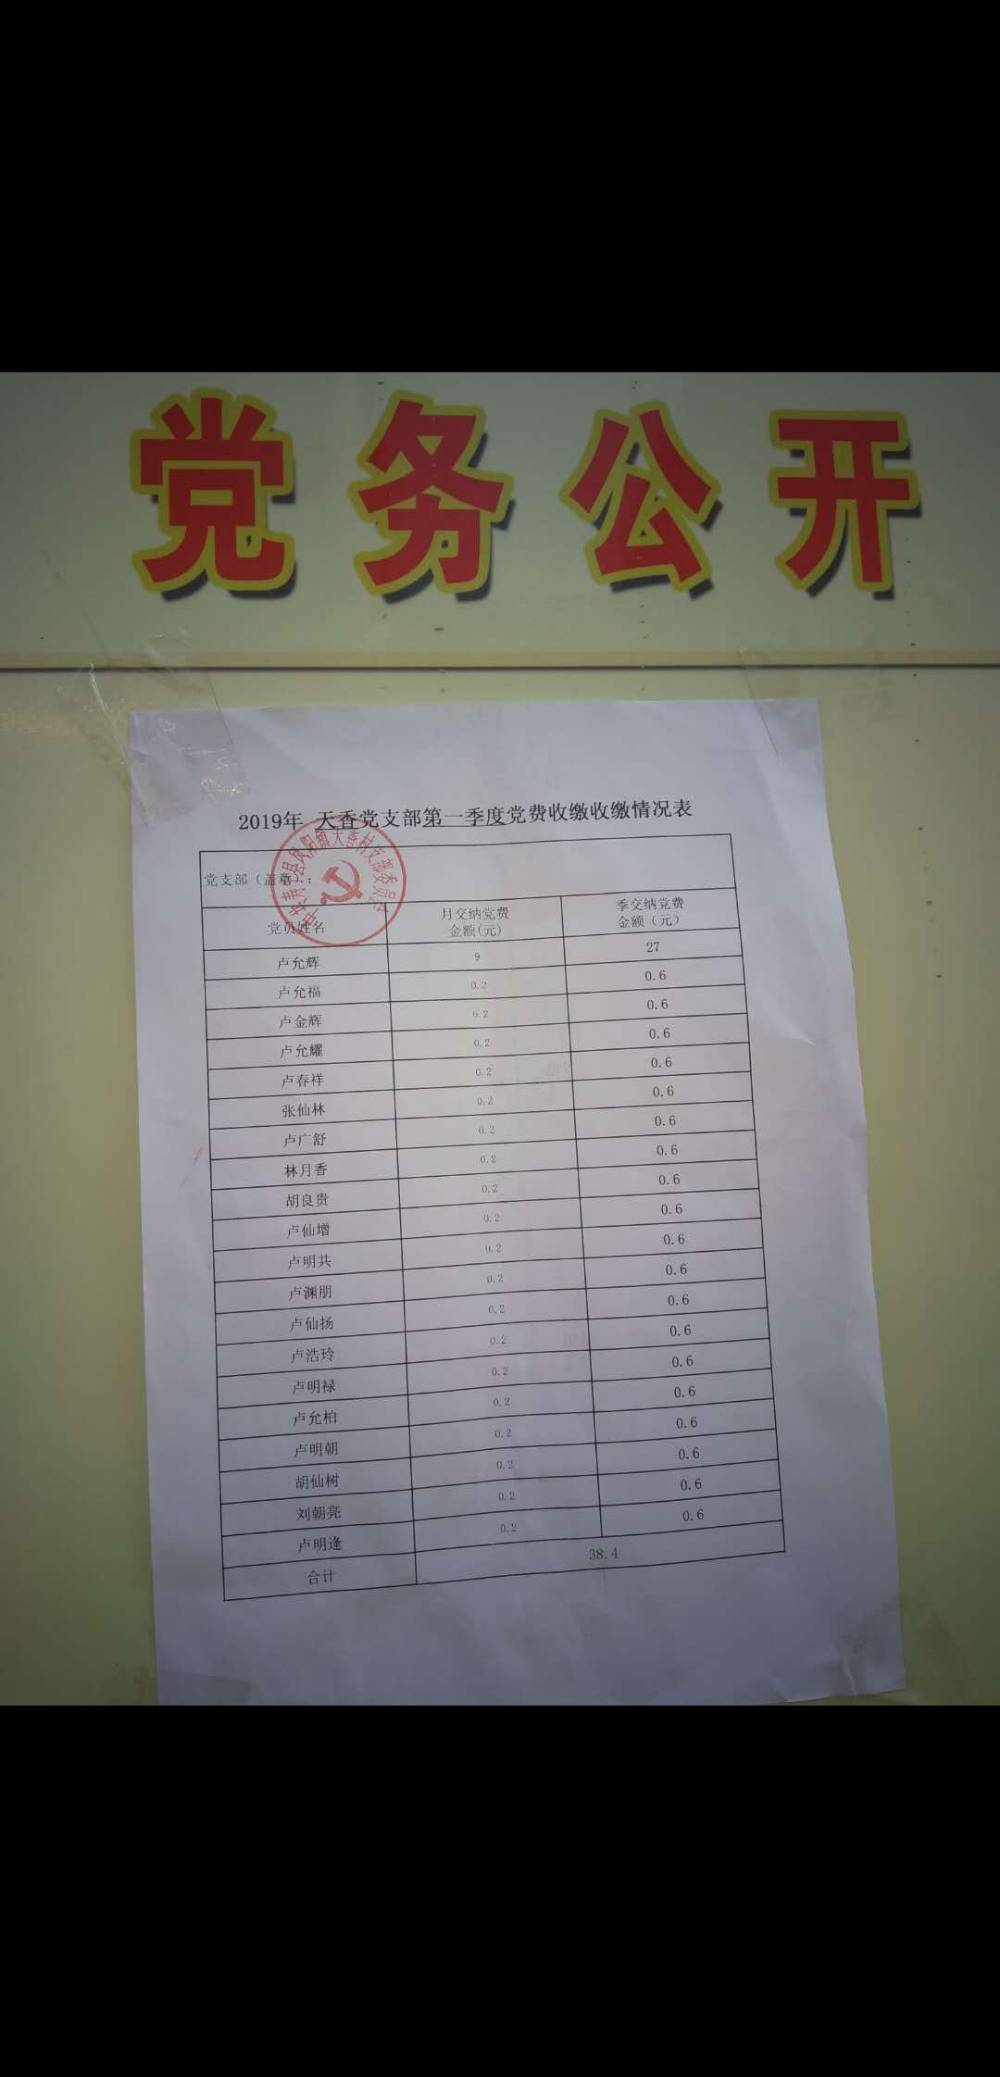 党务公开
2019年 天香党支部第一季度党费收缴收缴情况表
党支部（盖章）：
党员姓名 月交纳党费金额(元) 季交纳党费金额（元）
卢允辉 9 27
卢允福 0.2 0.6
卢金辉 0.2 0.6
卢允耀 0.2 0.6
卢春祥 0.2 0.6
张仙林 0.2 0.6
卢广舒 0.2 0.6
林月香 0.2 0.6
胡良贵 0.2 0.6
卢仙增 0.2 0.6
卢明共 0.2 0.6
卢渊朋 0.2 0.6
卢仙扬 0.2 0.6
卢浩玲 0.2 0.6
卢明禄 0.2 0.6
卢允柏 0.2 0.6
卢明朝 0.2 0.6
胡仙树 0.2 0.6
刘朝亮 0.2 0.6
卢明逢 0.2 0.6
合计 38.4